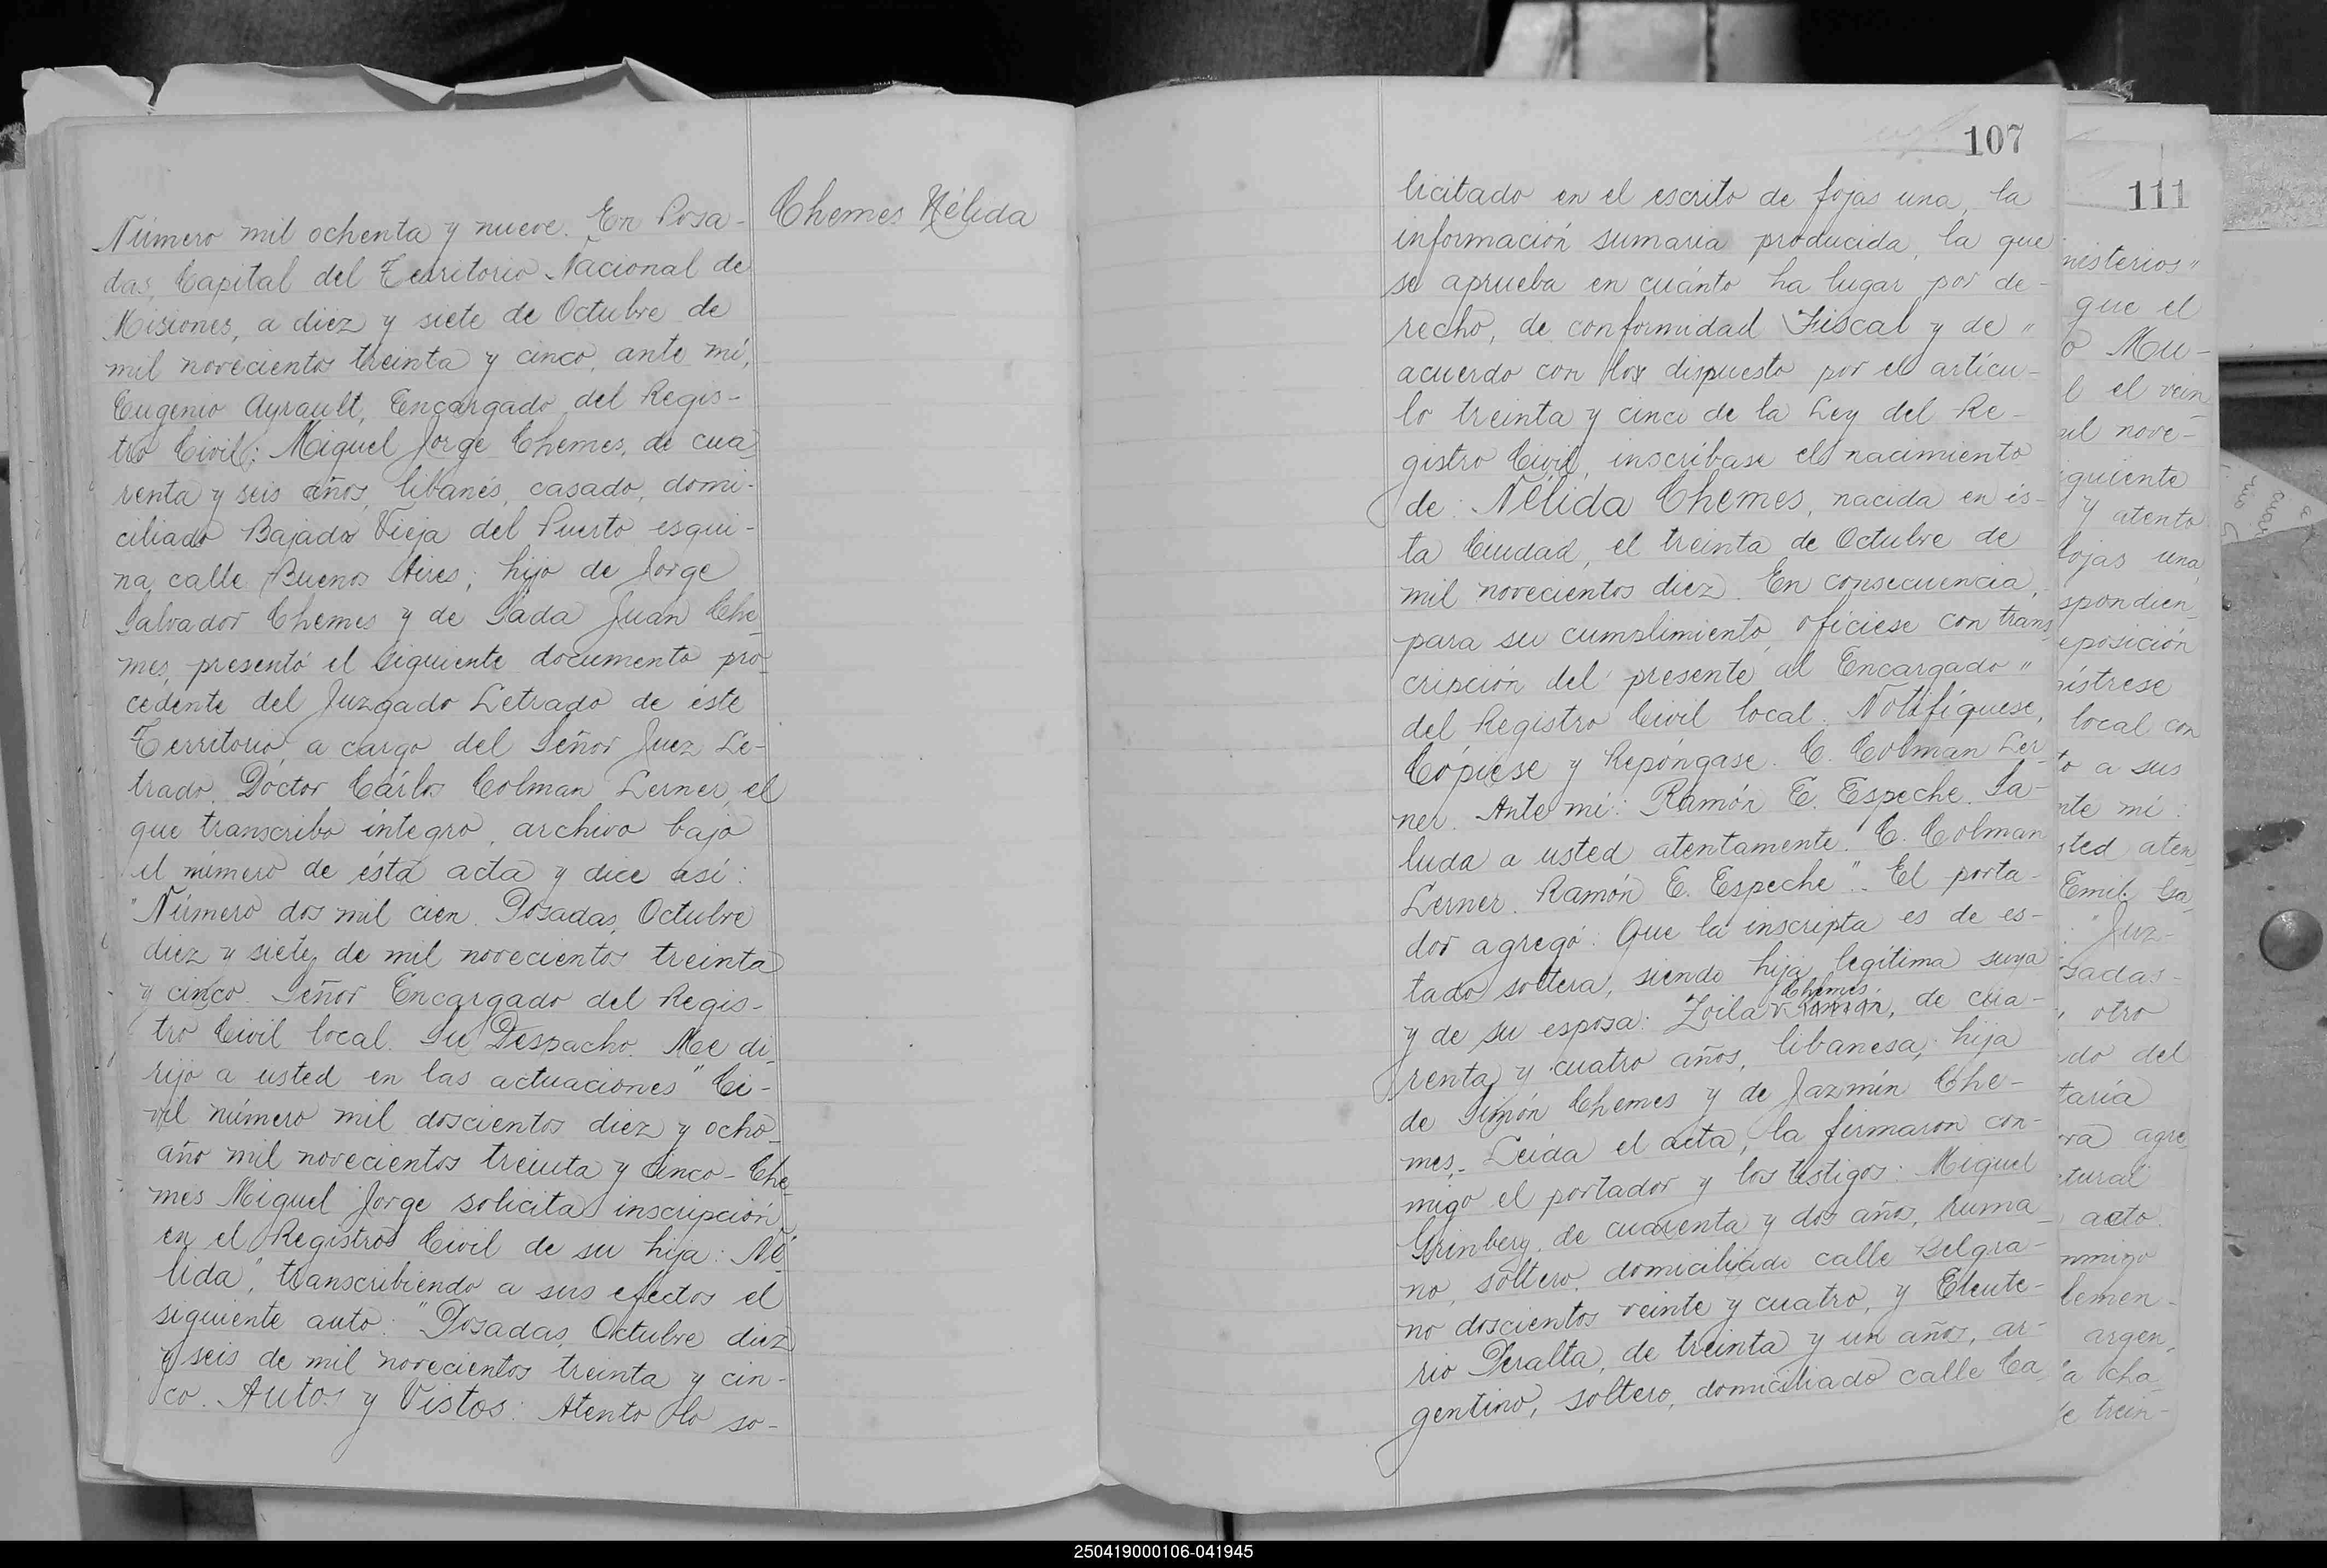 Chemes Nélida
Número mil ochenta y nueve. En Posa-
das, Capital del Territorio Nacional de
Misiones, a diez y siete de Octubre de
mil novecientos treinta y cinco, ante mí,
Eugenio Ayrault, Encargado del Regis-
tro Civil; Miguel Jorge Chemes, de cua
renta y seis años, libanés, casado, domi-
ciliado Bajada Vieja del Puerto esqui-
na calle Buenos Aires; hijo de Jorge
Salvador Chemes y de Sada Juan Che
mes, presentó el siguiente documento pro-
cedente del Juzgado Letrado de éste
Territorio, a cargo del Señor Juez Le-
trado, Doctor Cárlos Colman Lerner, el
que transcribo íntegro, archivo bajo
el número de ésta acta y dice así:
"Número dos mil cien. Posadas, Octubre
diez y siete, de mil novecientos treinta
y cinco. Señor Encargado del Regis-
tro Civil local. Su Despacho. Me di-
rijo a usted en las actuaciones "Ci-
vil número mil doscientos diez y ocho-
año mil novecientos treinta y cinco - Che-
mes Miguel Jorge solicita inscripción
en el Registro Civil de su hija: Né-
lida", transcribiendo a sus efectos el
siguiente auto: "Posadas, Octubre diez
y seis de mil novecientos treinta y cin-
co. Autos y Vistos: Atento lo so-
107
licitado en el escrito de fojas una, la
información sumaria producida, la que
se aprueba en cuánto ha lugar por de-
recho, de conformidad Fiscal y de "
acuerdo con lo dispuesto por el artícu-
lo treinta y cinco de la Ley del Re-
gistro Civil, inscríbase el nacimiento
de: Nélida Chemes, nacida en és-
ta Ciudad, el treinta de Octubre de
mil novecientos diez. En consecuencia,
para su cumplimiento, ofíciese con trans-
cripción del presente al Encargado "
del Registro Civil local. Notifíquese,
Cópiese y Repóngase. C. Colman Ler-
ner. Ante mí: Ramón E. Espeche. Sa-
luda a usted atentamente. C. Colman
Lerner. Ramón E. Espeche". El porta-
dor agregó: Que la inscripta es de es-
tado soltera, siendo hija legítima suya
y de su esposa: Zoila Chemes, de cua-
renta y cuatro años, libanesa; hija
de Simón Chemes y de Jazmín Che-
mes. Leída el acta, la firmaron con-
migo el portador y los testigos: Miguel
Grinberg, de cuarenta y dos años, ruma-
no, soltero, domiciliado calle Belgra-
no doscientos veinte y cuatro, y Eleute-
rio Peralta, de treinta y un años, ar-
gentino, soltero, domiciliado calle Ca
111
nisterios"
que el
o Mu-
l el vein
mil nove-
siguiente
y atento
fojas una,
spondien
eposición
gístrese
local con
to a sus
nte mí.
sted aten
Emil Ga
: "Juz-
sadas-
, otro
do del
taría
ora agre
tural
acto
nmigo
lemen-
argen,
a cha
te trein-
250419000106-041945